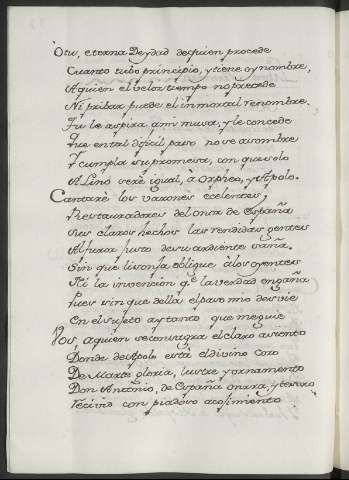 O tu, eterna Deydad de quien procede
Cuanto tubo principio, y tiene oy nombre,
A quien el veloz tiempo no precede
Ni pribar puede el inmortal renombre.
Tu le aspira, a mi musa, y le concede
Que en tal dificil paso no se asombre
Y cumpla su promesa, con que solo
A Lino sere igual, à Orpheo, y Apolo.
Cantarè los varones ecelentes,
Restauradores del onor de España
Sus claros hechos las rendidas gentes
Al fuerte justo de su ardiente saña.
Sin que lisonja oblique à los oyentes
Ni la invencion q.e la verdad engaña
pues sin que della el paso mio desvie
En el sujeto ay tanto que me guie
Vos, a quien se consagra el claro asiento
Donde de Apolo està el divino coro
De Marte gloria, lustre y ornamento
Don Antonio, de España onrra, y tesoro
Recivid con piadoso acojimiento